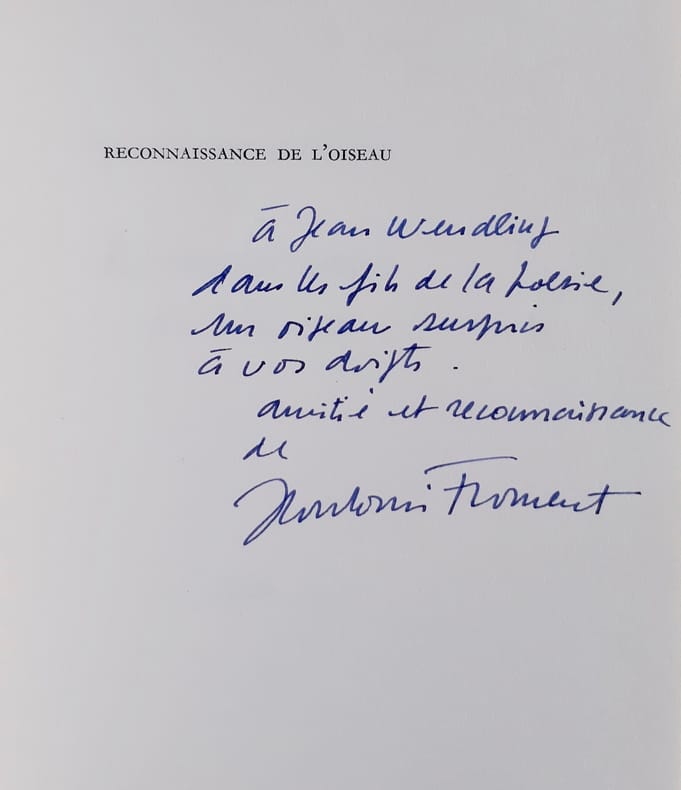 RECONNAISSANCE DE L'OISEAU
à Jean Wendling
dans les fils de la poésie,
un oiseau surpris
à vos doigts.
amitié et reconnaissance
de
Jean Louis Froment